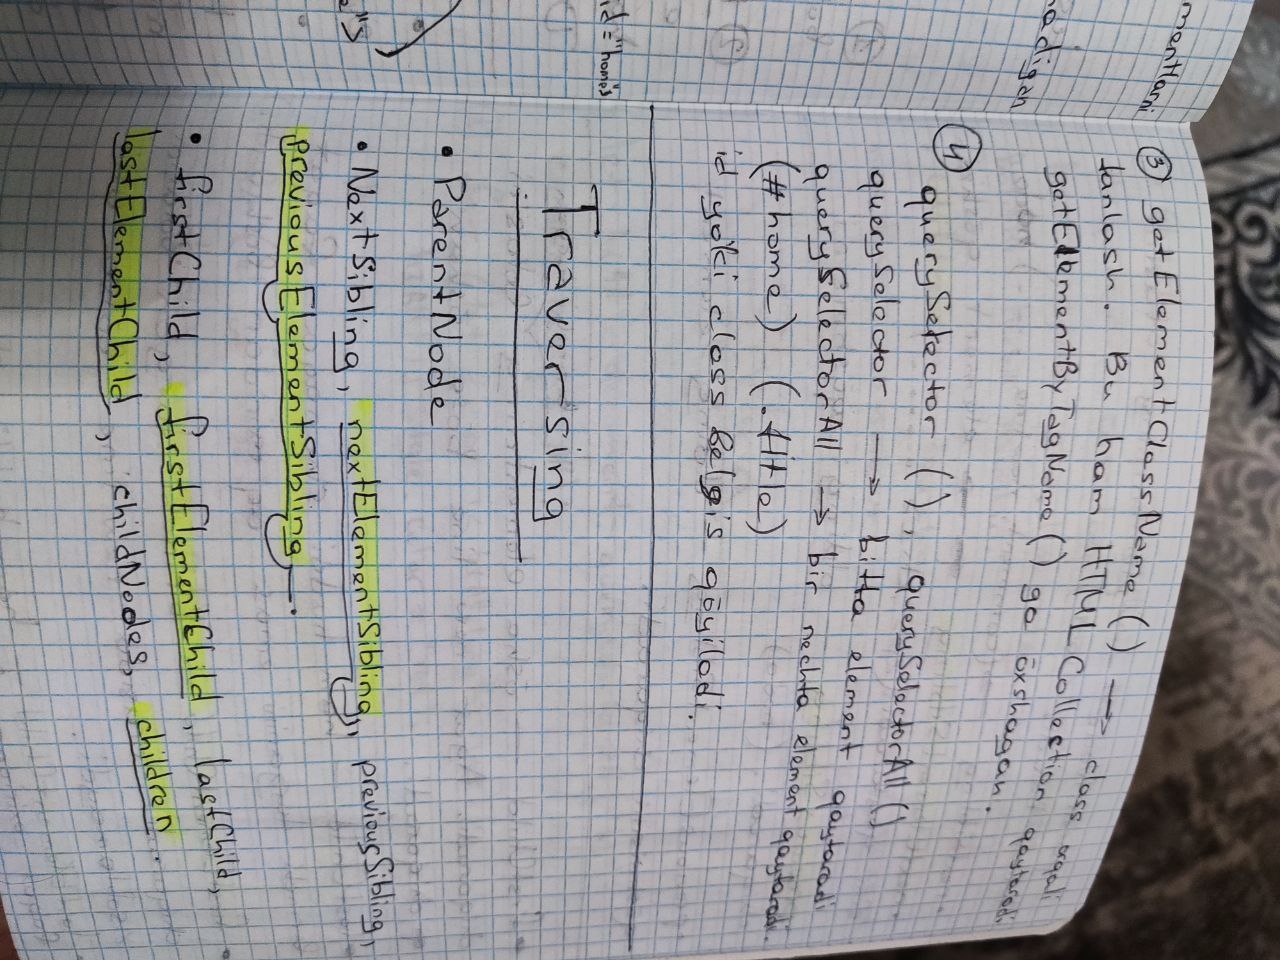 mentlarni
nadigan
id="home">
③ getElementClassName () → class orqali
tanlash. Bu ham HTML Collection qaytaradi
getElementByTagName () ga ōxshagan.
④ querySelector (), querySelectorAll ()
querySelector → bitta element qaytaradi
querySelectorAll → bir nechta element qaytaradi.
(#home) (.title)
id yoki class belgis qōyiladi.
Traversing
• ParentNode
• NextSibling, nextElementSibling, previousSibling,
previousElementSibling.
• firstChild, firstElementChild, lastChild,
lastElementChild, childNodes, children.